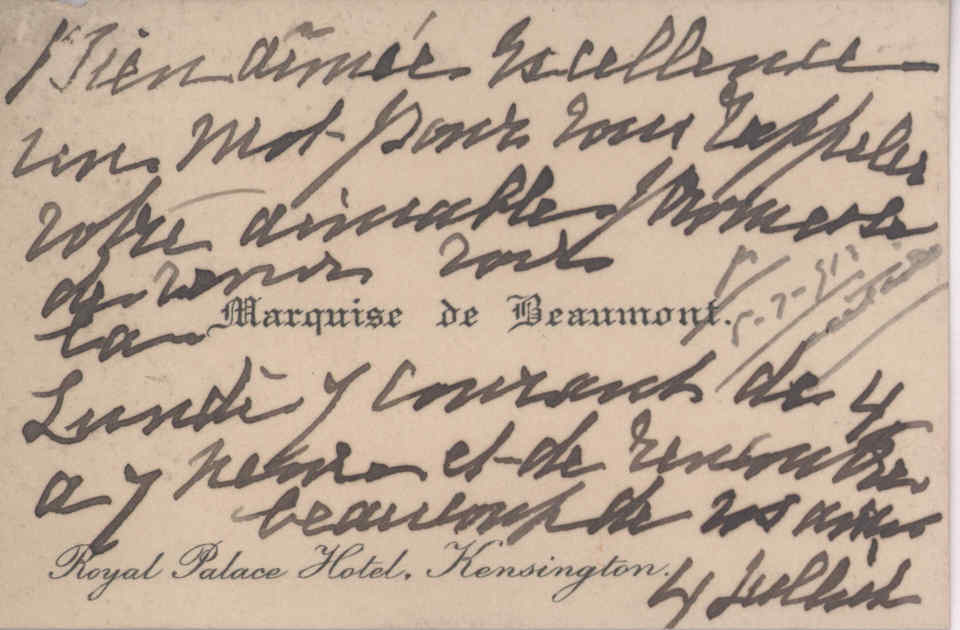 Bien aimée Excellence
un mot pour vous rappeler
votre aimable promesse
de venir voir
Marquise de Beaumont.
la
Lundi 7 courant de 4
a 7 heures et de rencontrer
beaucoup de vos amis
Royal Palace Hotel, Kensington.